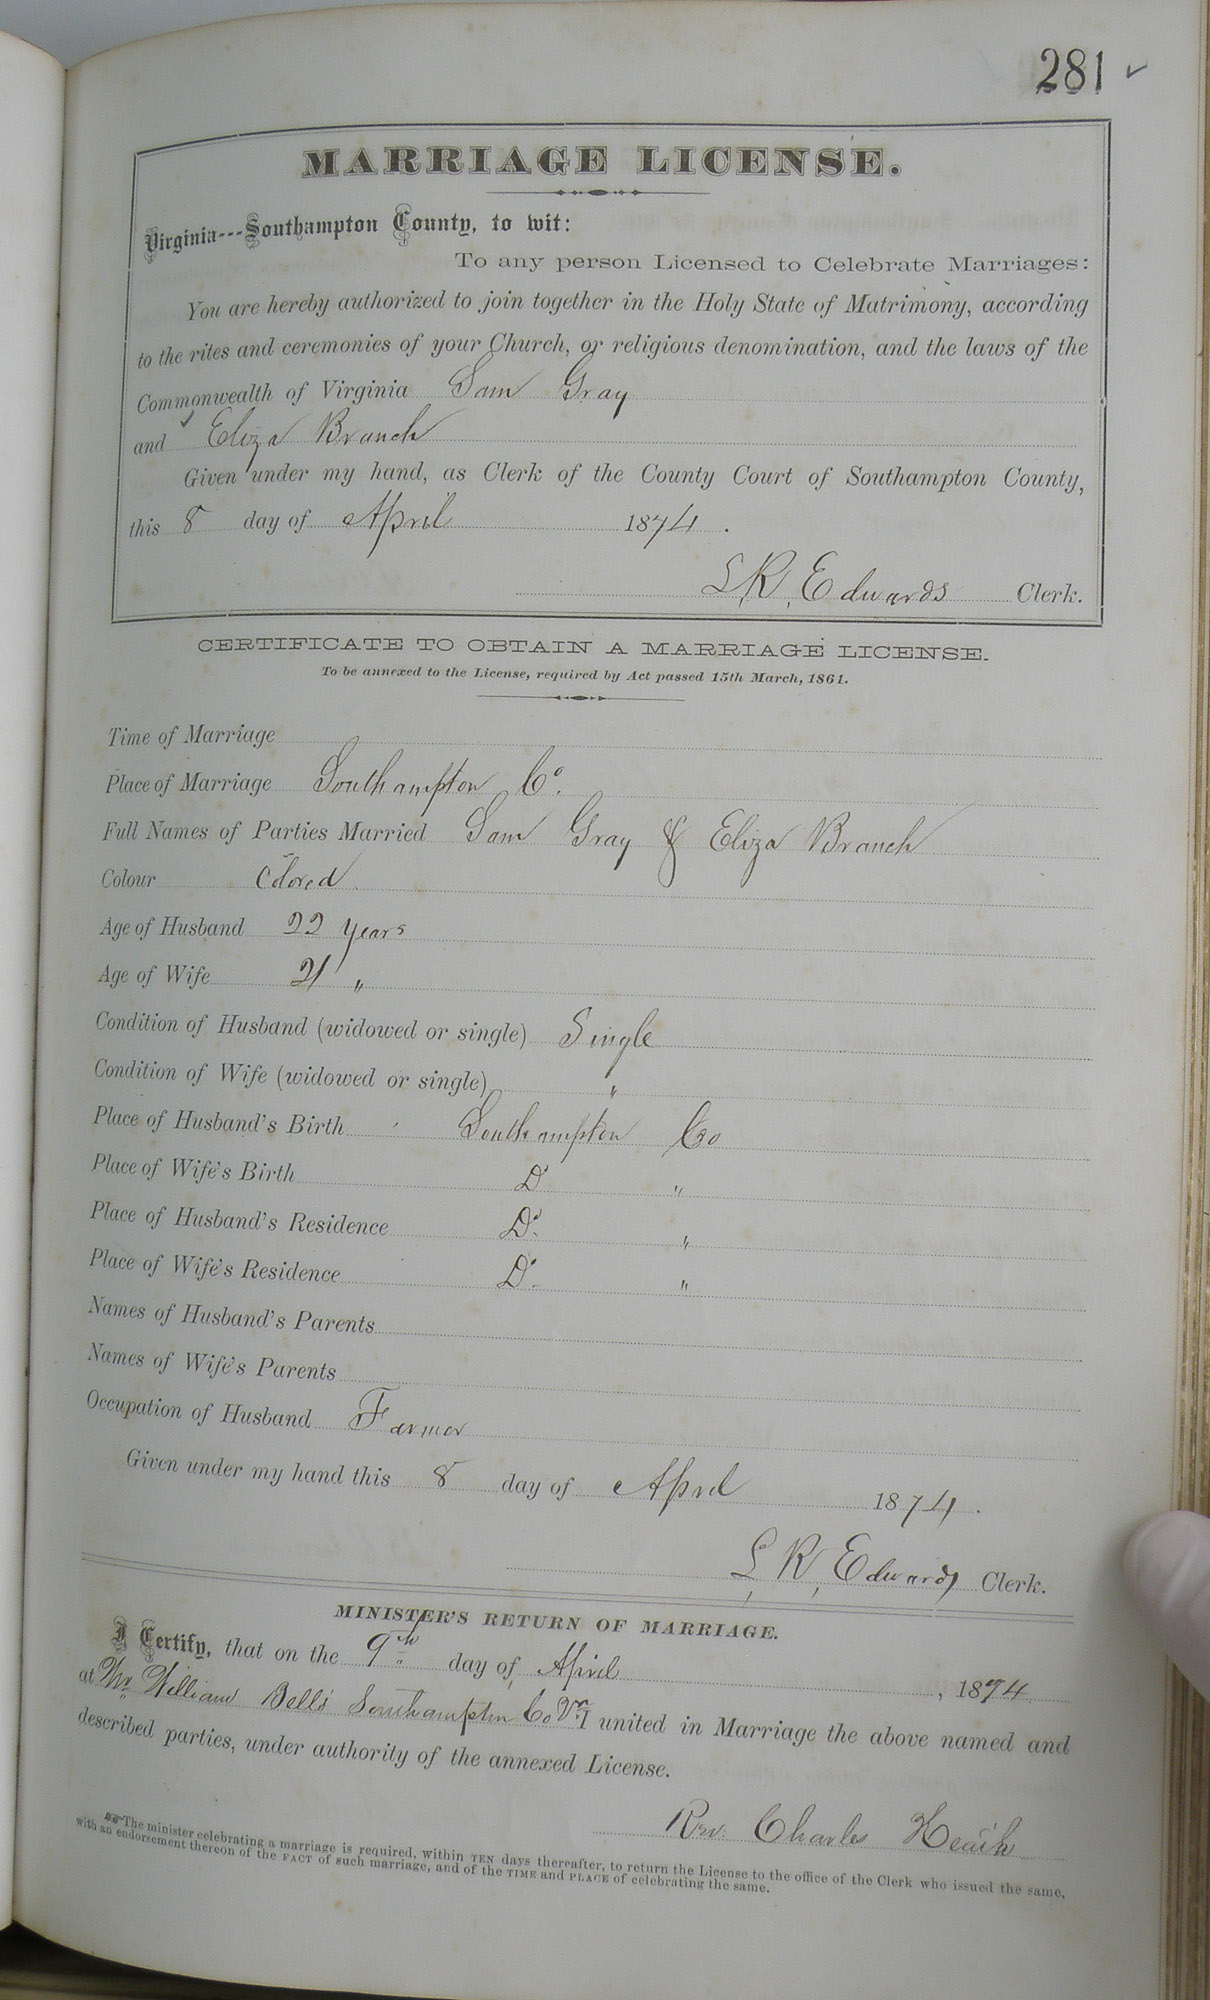 281 ✓
MARRIAGE LICENSE.
Virginia---Southampton County, to wit:
To any person Licensed to Celebrate Marriages:
You are hereby authorized to join together in the Holy State of Matrimony, according
to the rites and ceremonies of your Church, or religious denomination, and the laws of the
Commonwealth of Virginia Sam Gray
and Eliza Branch
Given under my hand, as Clerk of the County Court of Southampton County,
this 8 day of April 1874.
L R Edwards Clerk.
CERTIFICATE TO OBTAIN A MARRIAGE LICENSE.
To be annexed to the License, required by Act passed 15th March, 1861.
Time of Marriage
Place of Marriage Southampton Co.
Full Names of Parties Married Sam Gray & Eliza Branch
Colour Colored
Age of Husband 22 years
Age of Wife 21 "
Condition of Husband (widowed or single) Single
Condition of Wife (widowed or single) "
Place of Husband's Birth Southampton Co
Place of Wife's Birth Do "
Place of Husband's Residence Do. "
Place of Wife's Residence Do. "
Names of Husband's Parents
Names of Wife's Parents
Occupation of Husband Farmer
Given under my hand this 8 day of April 1874.
L R Edwards Clerk.
MINISTER'S RETURN OF MARRIAGE.
I Certify, that on the 9th day of April, 1874
at Mr. William Bells Southampton Co Va. I united in Marriage the above named and
described parties, under authority of the annexed License.
Rev. Charles Heath
☞The minister celebrating a marriage is required, within TEN days thereafter, to return the License to the office of the Clerk who issued the same,
with an endorsement thereon of the FACT of such marriage, and of the TIME and PLACE of celebrating the same.